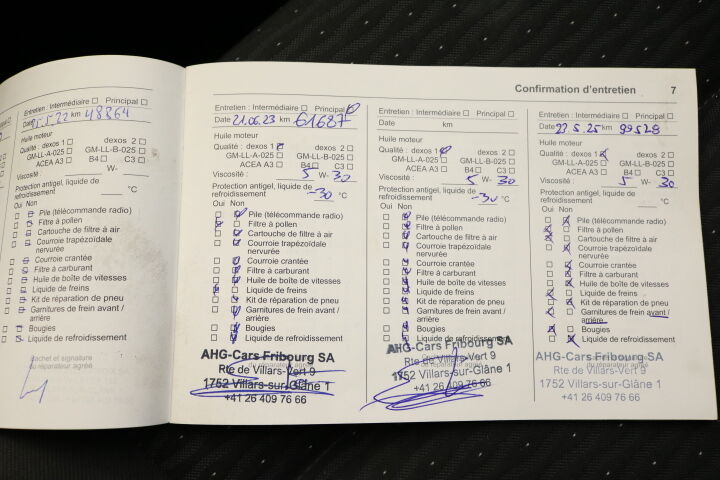 Confirmation d'entretien 7
Entretien : Intermédiaire Principal
Date 25.5.22 km 48864
Huile moteur
Qualité : dexos 1 dexos 2
GM-LL-A-025 GM-LL-B-025
ACEA A3 B4 C3
Viscosité : W-
Protection antigel, liquide de
refroidissement °C
Oui Non
Pile (télécommande radio)
Filtre à pollen
Cartouche de filtre à air
Courroie trapézoïdale
nervurée
Courroie crantée
Filtre à carburant
Huile de boîte de vitesses
Liquide de freins
Kit de réparation de pneu
Garnitures de frein avant /
arrière
Bougies
Liquide de refroidissement
Cachet et signature
du réparateur agréé
Entretien : Intermédiaire Principal
Date 21.06.23 km 61687
Huile moteur
Qualité : dexos 1 dexos 2
GM-LL-A-025 GM-LL-B-025
ACEA A3 B4 C3
Viscosité : 5 W- 30
Protection antigel, liquide de
refroidissement -30 °C
Oui Non
Pile (télécommande radio)
Filtre à pollen
Cartouche de filtre à air
Courroie trapézoïdale
nervurée
Courroie crantée
Filtre à carburant
Huile de boîte de vitesses
Liquide de freins
Kit de réparation de pneu
Garnitures de frein avant /
arrière
Bougies
Liquide de refroidissement
AHG-Cars Fribourg SA
Rte de Villars-Vert 9
1752 Villars-sur-Glâne 1
+41 26 409 76 66
Entretien : Intermédiaire Principal
Date km
Huile moteur
Qualité : dexos 1 dexos 2
GM-LL-A-025 GM-LL-B-025
ACEA A3 B4 C3
Viscosité : 5 W- 30
Protection antigel, liquide de
refroidissement -30 °C
Oui Non
Pile (télécommande radio)
Filtre à pollen
Cartouche de filtre à air
Courroie trapézoïdale
nervurée
Courroie crantée
Filtre à carburant
Huile de boîte de vitesses
Liquide de freins
Kit de réparation de pneu
Garnitures de frein avant /
arrière
Bougies
Liquide de refroidissement
AHG-Cars Fribourg SA
Rte de Villars-Vert 9
du réparateur agréé
1752 Villars-sur-Glâne 1
+41 26 409 76 66
Entretien : Intermédiaire Principal
Date 23.5.25 km 99528
Huile moteur
Qualité : dexos 1 dexos 2
GM-LL-A-025 GM-LL-B-025
ACEA A3 B4 C3
Viscosité : 5 W- 30
Protection antigel, liquide de
refroidissement °C
Oui Non
Pile (télécommande radio)
Filtre à pollen
Cartouche de filtre à air
Courroie trapézoïdale
nervurée
Courroie crantée
Filtre à carburant
Huile de boîte de vitesses
Liquide de freins
Kit de réparation de pneu
Garnitures de frein avant /
arrière
Bougies
Liquide de refroidissement
AHG-Cars Fribourg SA
Rte de Villars-Vert 9
du réparateur agréé
1752 Villars-sur-Glâne 1
+41 26 409 76 66